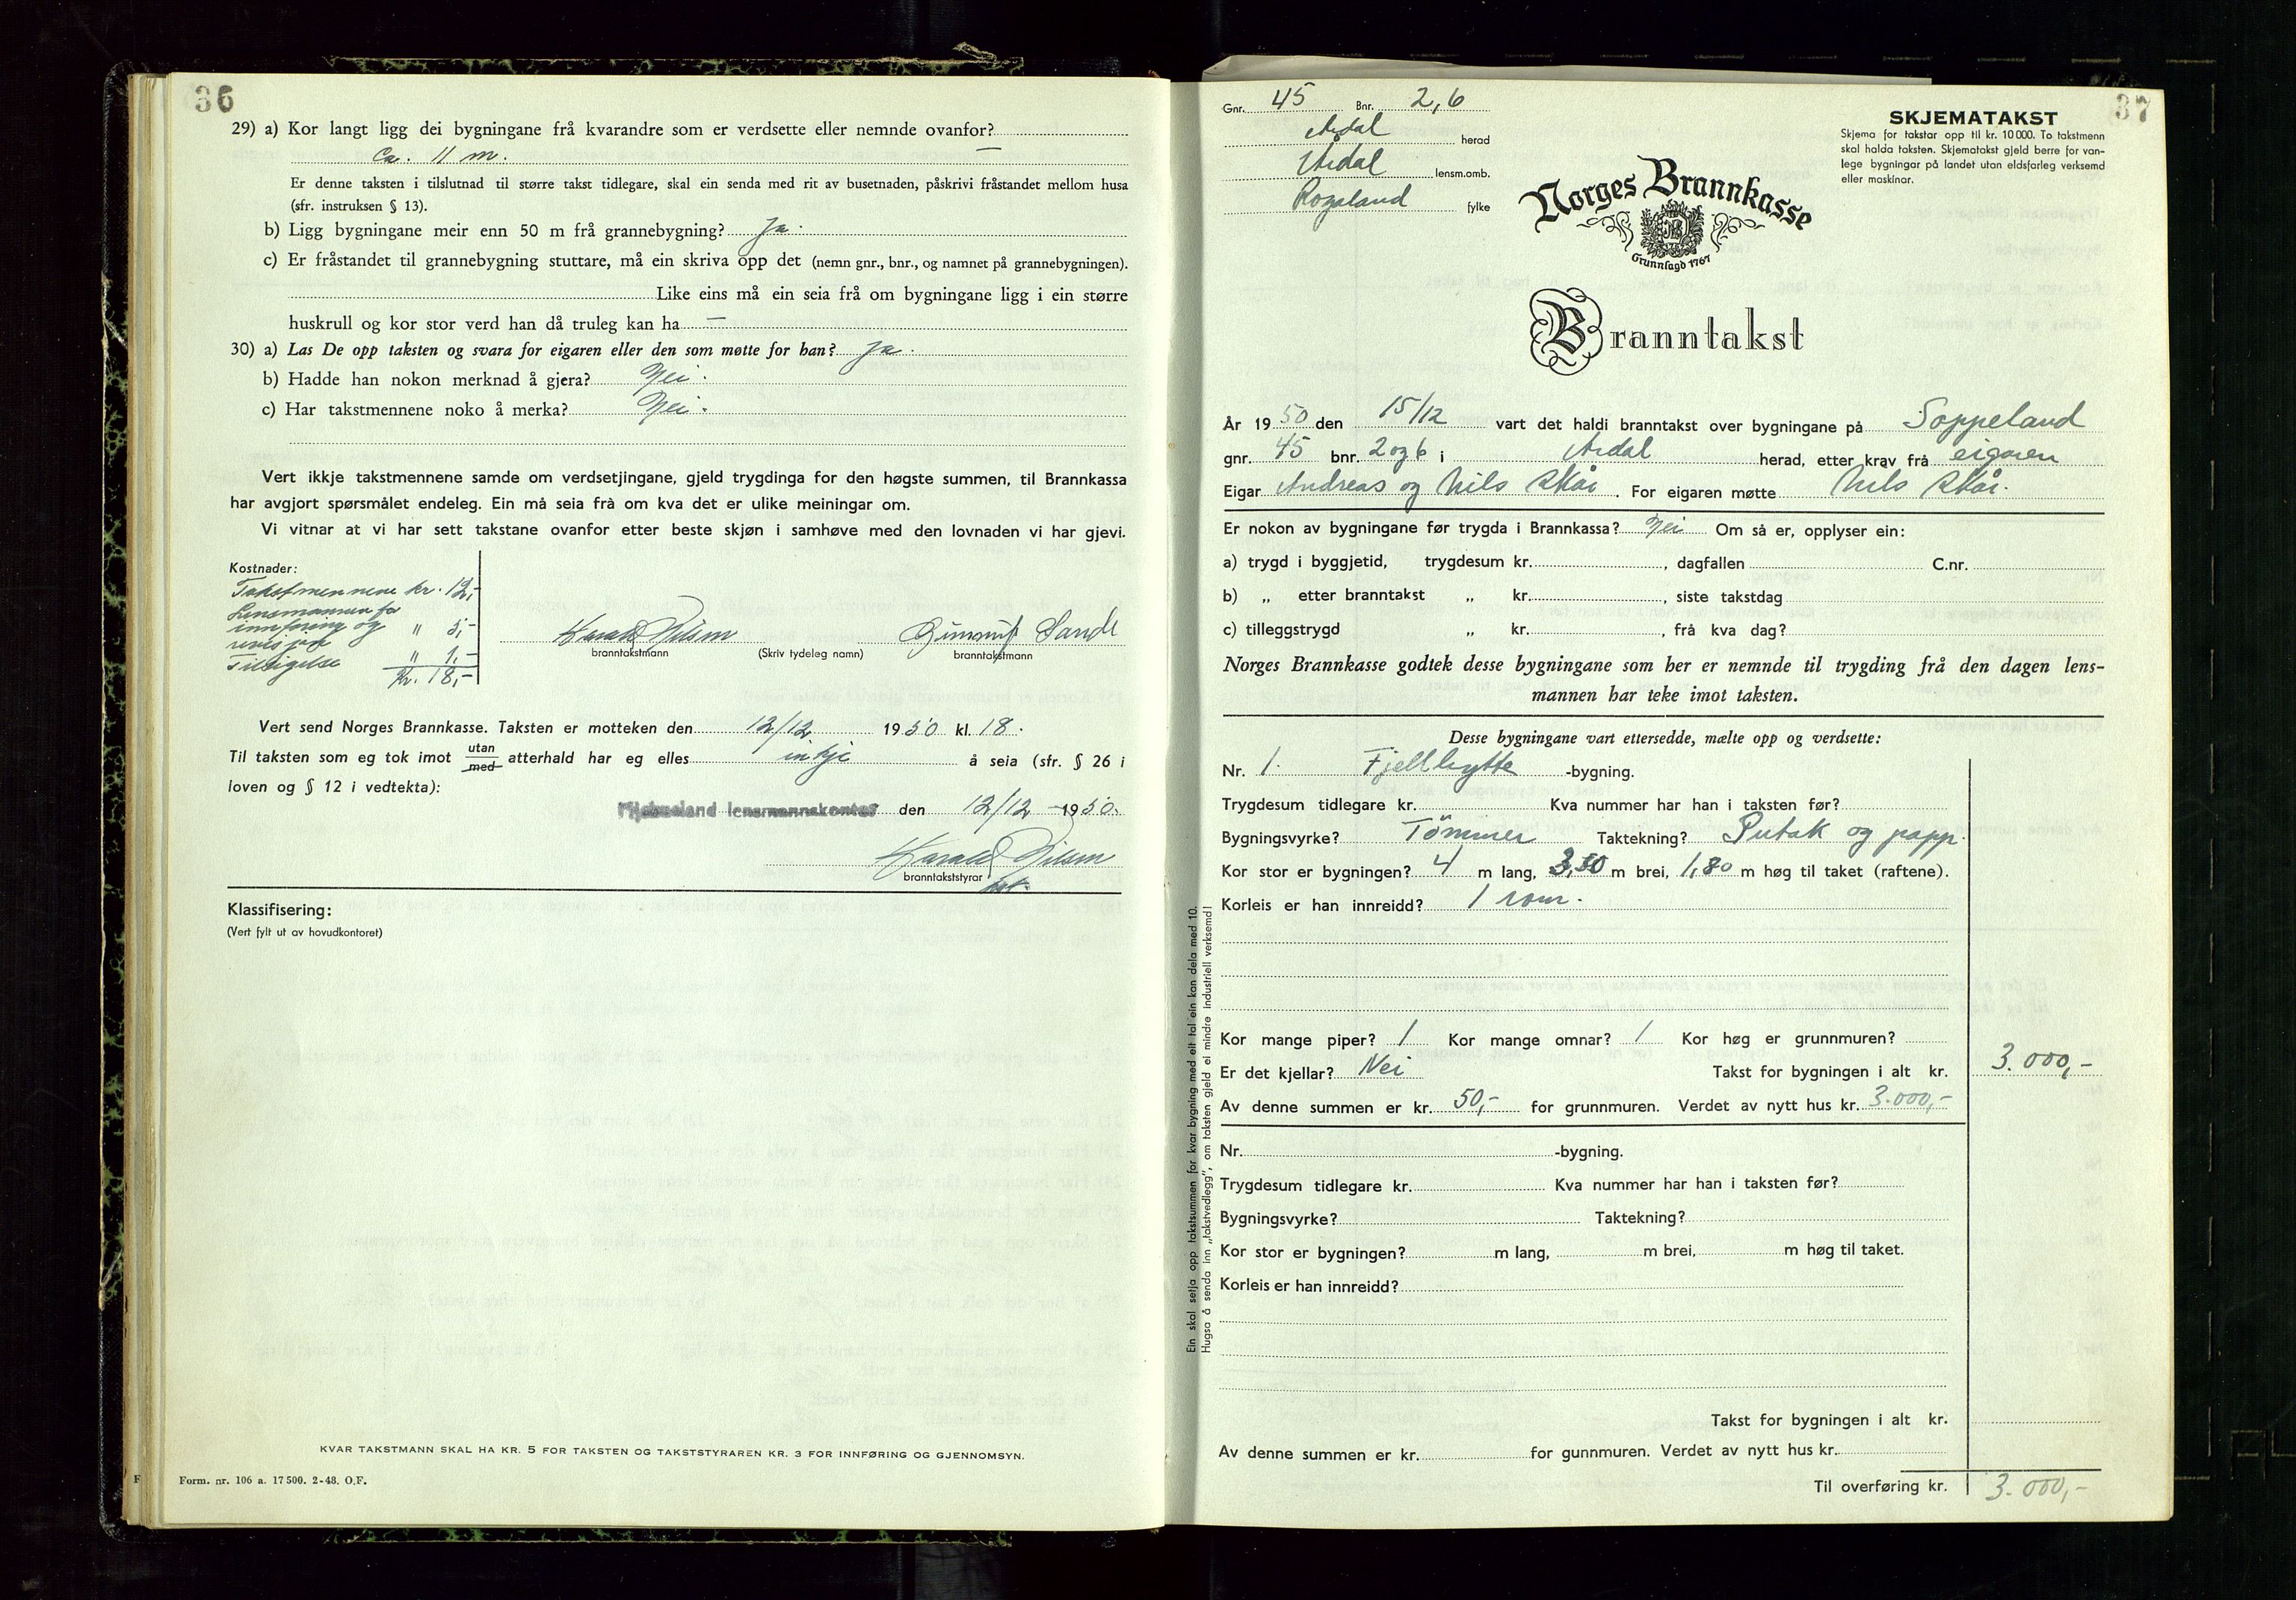 36
29) a) Kor langt ligg dei bygningane frå kvarandre som er verdsette eller nemnde ovanfor? —
Ca. 11 m.
Er denne taksten i tilslutnad til større takst tidlegare, skal ein senda med rit av busetnaden, påskrivi fråstandet mellom husa
(sfr. instruksen § 13).
b) Ligg bygningane meir enn 50 m frå grannebygning? Ja.
c) Er fråstandet til grannebygning stuttare, må ein skriva opp det (nemn gnr., bnr., og namnet på grannebygningen).
Like eins må ein seia frå om bygningane ligg i ein større
huskrull og kor stor verd han då truleg kan ha —
30) a) Las De opp taksten og svara for eigaren eller den som møtte for han? Ja.
b) Hadde han nokon merknad å gjera? Nei.
c) Har takstmennene noko å merka? Nei.
Vert ikkje takstmennene samde om verdsetjingane, gjeld trygdinga for den høgste summen, til Brannkassa
har avgjort spørsmålet endeleg. Ein må seia frà om kva det er ulike meiningar om.
Vi vitnar at vi har sett takstane ovanfor etter beste skjøn i samhøve med den lovnaden vi har gjevi.
Kostnader:
Takstmennene kr. 12,-
Lensmannen for
innføring og " 5,-
revisjon
Tilsigelse " 1,-
Kr. 18,-
Harald Nilsen Sande
branntakstmann (Skriv tydeleg namn) branntakstmann
Vert send Norges Brannkasse. Taksten er motteken den 12/12 1950 kl. 18.
Til taksten som eg tok imot utan/med atterhald har eg elles inkje å seia (sfr. § 26 i
loven og § 12 i vedtekta):
Hjelmeland lensmannskontor den 12/12 - 1950.
Harald Nilsen
branntakststyrar
Klassifisering:
(Vert fylt ut av hovudkontoret)
KVAR TAKSTMANN SKAL HA KR. 5 FOR TAKSTEN OG TAKSTSTYRAREN KR. 3 FOR INNFØRING OG GJENNOMSYN.
F
Form. nr. 106 a. 17 500. 2-48. O.F.
37
Gnr. 45 Bnr. 2,6
Årdal herad
Årdal lensm.omb.
Rogaland fylke
SKJEMATAKST
Skjema for takstar opp til kr. 10 000. To takstmenn
skal halda taksten. Skjematakst gjeld berre for van-
lege bygningar på landet utan eldsfarleg verksemd
eller maskinar.
Norges Brannkasse
Grunnlagd 1767
Branntakst
År 1950 den 15/12 vart det haldi branntakst over bygningane på Soppeland
gnr. 45 bnr. 2 og 6 i Årdal herad, etter krav frå eigaren
Eigar Andreas og Nils Skår. For eigaren møtte Nils Skår.
Er nokon av bygningane før trygda i Brannkassa? Nei Om så er, opplyser ein:
a) trygd i byggjetid, trygdesum kr. , dagfallen C.nr.
b) „ etter branntakst „ kr. , siste takstdag
c) tilleggstrygd „ kr. , frå kva dag?
Norges Brannkasse godtek desse bygningane som her er nemnde til trygding frå den dagen lens-
mannen har teke imot taksten.
Desse bygningane vart ettersedde, mælte opp og verdsette:
Nr. 1. Fjellhytte -bygning.
Trygdesum tidlegare kr. Kva nummer har han i taksten før?
Bygningsvyrke? Tömmer Taktekning? Sutak og papp.
Kor stor er bygningen? 4 m lang, 3,50 m brei, 1,80 m høg til taket (raftene).
Korleis er han innreidd? 1 rom.
Kor mange piper? 1 Kor mange omnar? 1 Kor høg er grunnmuren?
Er det kjellar? Nei Takst for bygningen i alt kr. 3.000,-
Av denne summen er kr. 50,- for grunnmuren. Verdet av nytt hus kr. 3.000,-
Nr. -bygning.
Trygdesum tidlegare kr. Kva nummer har han i taksten før?
Bygningsvyrke? Taktekning?
Kor stor er bygningen? m lang, m brei, m høg til taket.
Korleis er han innreidd?
Takst for bygningen i alt kr.
Av denne summen er kr. for gunnmuren. Verdet av nytt hus kr.
Til overføring kr. 3.000,-
Ein skal setja opp takstsummen for kvar bygning med eit tal ein kan dela med 10.
Hugsa å senda inn „takstvedlegg", om taksten gjeld ei mindre industriell verksemd!